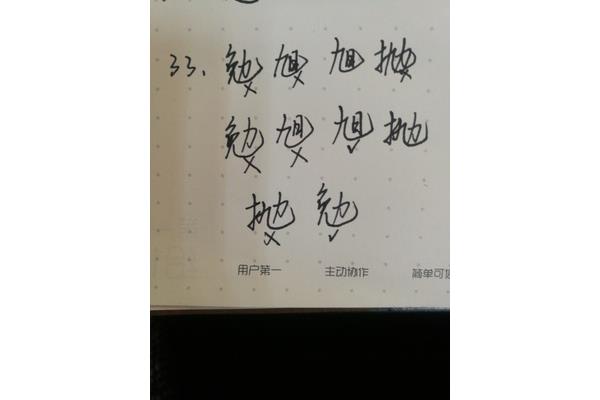 33、勉 旭 旭 抛
勉 旭 旭 抛
抛 勉
用户第一 主动协作 简单可